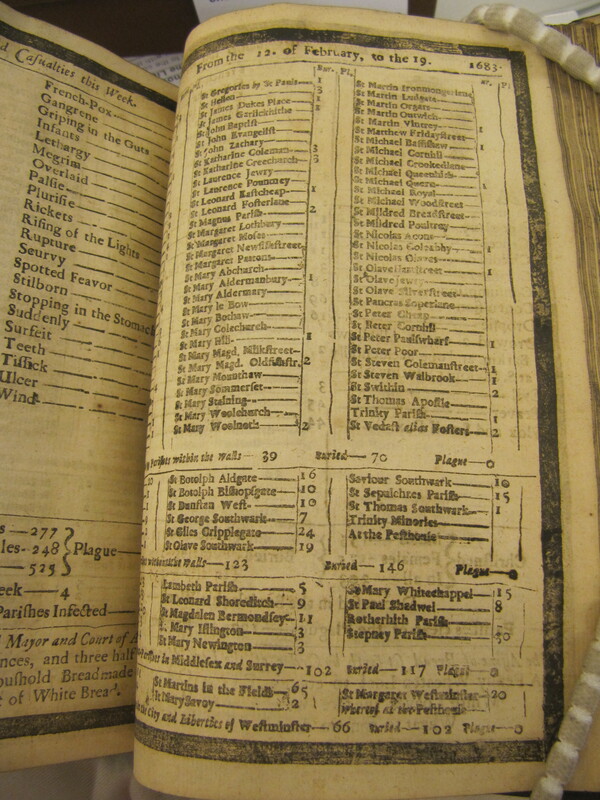 d Casualties this Week.
French-Pox
Gangrene
Griping in the Guts
Infants
Lethargy
Megrim
Overlaid
Palsie
Plurisie
Rickets
Rising of the Lights
Rupture
Scurvy
Spotted Feavor
Stilborn
Stopping in the Stomach
Suddenly
Surfeit
Teeth
Tissick
Ulcer
Wind
s — 277
les - 248 } Plague
— 525
eek — 4
Parishes Infected
Mayor and Court of A
nces, and three half
oushold Bread made
t of White Bread.
From the 12. of February, to the 19. 1683.
Bur. Pl.
St Gregories by St Pauls — 1
St Hellen — 3
St James Dukes Place — 1
St James Garlickhithe — 1
St John Baptist
St John Evangelist
St John Zachary
St Katharine Coleman — 3
St Katharine Creechurch — 3
St Laurence Jewry
St Laurence Pountney
St Leonard Eastcheap — 1
St Leonard Fosterlane
St Magnus Parish — 2
St Margaret Lothbury
St Margaret Moses
St Margaret Newfishstreet
St Margaret Pattons
St Mary Abchurch
St Mary Aldermanbury — 1
St Mary Aldermary
St Mary le Bow
St Mary Bothaw
St Mary Colechurch
St Mary Hill — 1
St Mary Magd. Milkstreet
St Mary Magd. Oldfishstr. 2
St Mary Mounthaw
St Mary Sommerset
St Mary Staining
St Mary Woolchurch
St Mary Woolnoth — 2
St Martin Ironmongerlane
St Martin Ludgate
St Martin Orgars
St Martin Outwich
St Martin Vintrey — 1
St Matthew Fridaystreet
St Michael Bassishaw — 1
St Michael Cornhil
St Michael Crookedlane
St Michael Queenhith
St Michael Quern — 1
St Michael Royal
St Michael Woodstreet
St Mildred Breadstreet
St Mildred Poultrey
St Nicolas Acons
St Nicolas Coleabby — 1
St Nicolas Olaves
St Olave Hartstreet — 1
St Olave Jewry
St Olave Silverstreet
St Pancras Soperlane
St Peter Cheap
St Peter Cornhil
St Peter Paulswharf — 1
St Peter Poor
St Steven Colemanstreet — 1
St Steven Walbrook — 1
St Swithin — 2
St Thomas Apostle
Trinity Parish — 1
St Vedast alias Fosters — 2
Parishes within the Walls — 39 Buried — 70 Plague — 0
St Botolph Aldgate — 16
St Botolph Bishopsgate — 10
St Dunstan West — 10
St George Southwark — 7
St Giles Cripplegate — 24
St Olave Southwark — 19
Saviour Southwark — 10
St Sepulchres Parish — 15
St Thomas Southwark — 1
Trinity Minories
At the Pesthouse
Walls — 123 Buried — 146 Plague — 0
Lambeth Parish — 5
St Leonard Shoreditch — 9
St Magdalen Bermondsey — 11
Mary Islington — 3
St Mary Newington — 3
St Mary Whitechappel — 15
St Paul Shadwel — 8
Rotherhith Parish
Stepney Parish — 30
in Middlesex and Surrey — 102 Buried — 117 Plague — 0
St Martins in the Fields — 65
St Mary Savoy — 2
St Margaret Westminster — 20
Whereof at the Pesthouse
City and Liberties of Westminster — 66 Buried — 102 Plague — 0